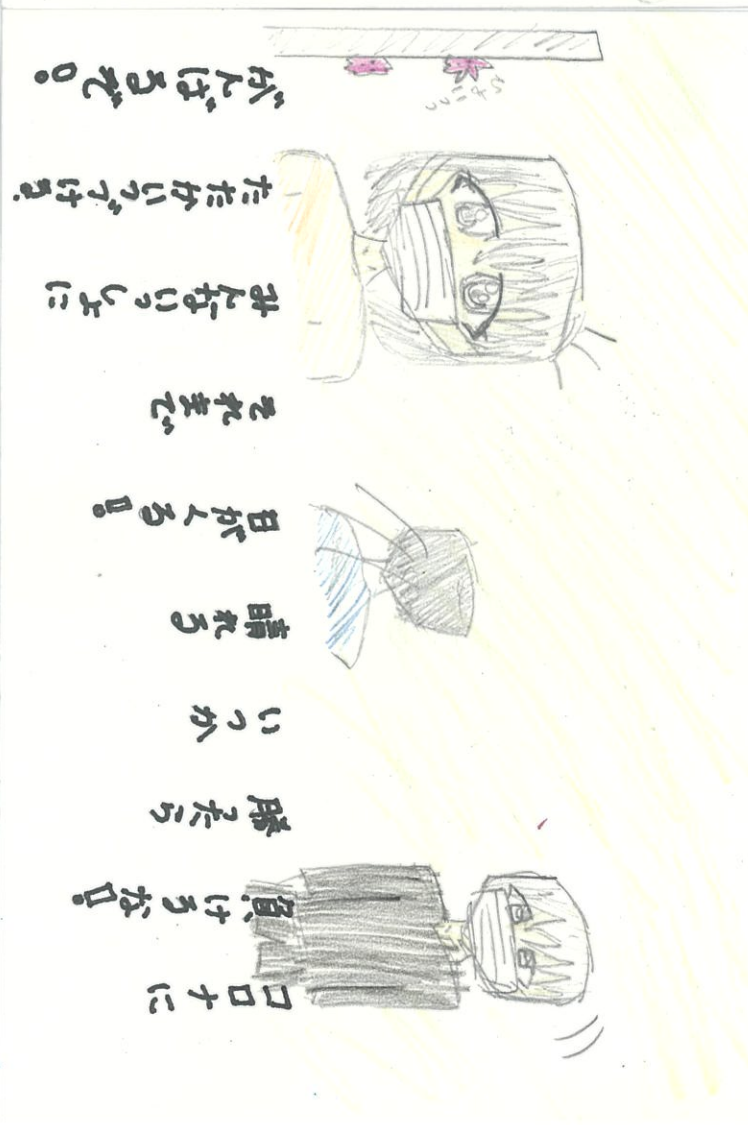 コロナに
負けるな!!
勝ったら
いつか
晴れる
日がくる!!
それまで
みんないっしょに
たたかいづける!
がんばるぞ!